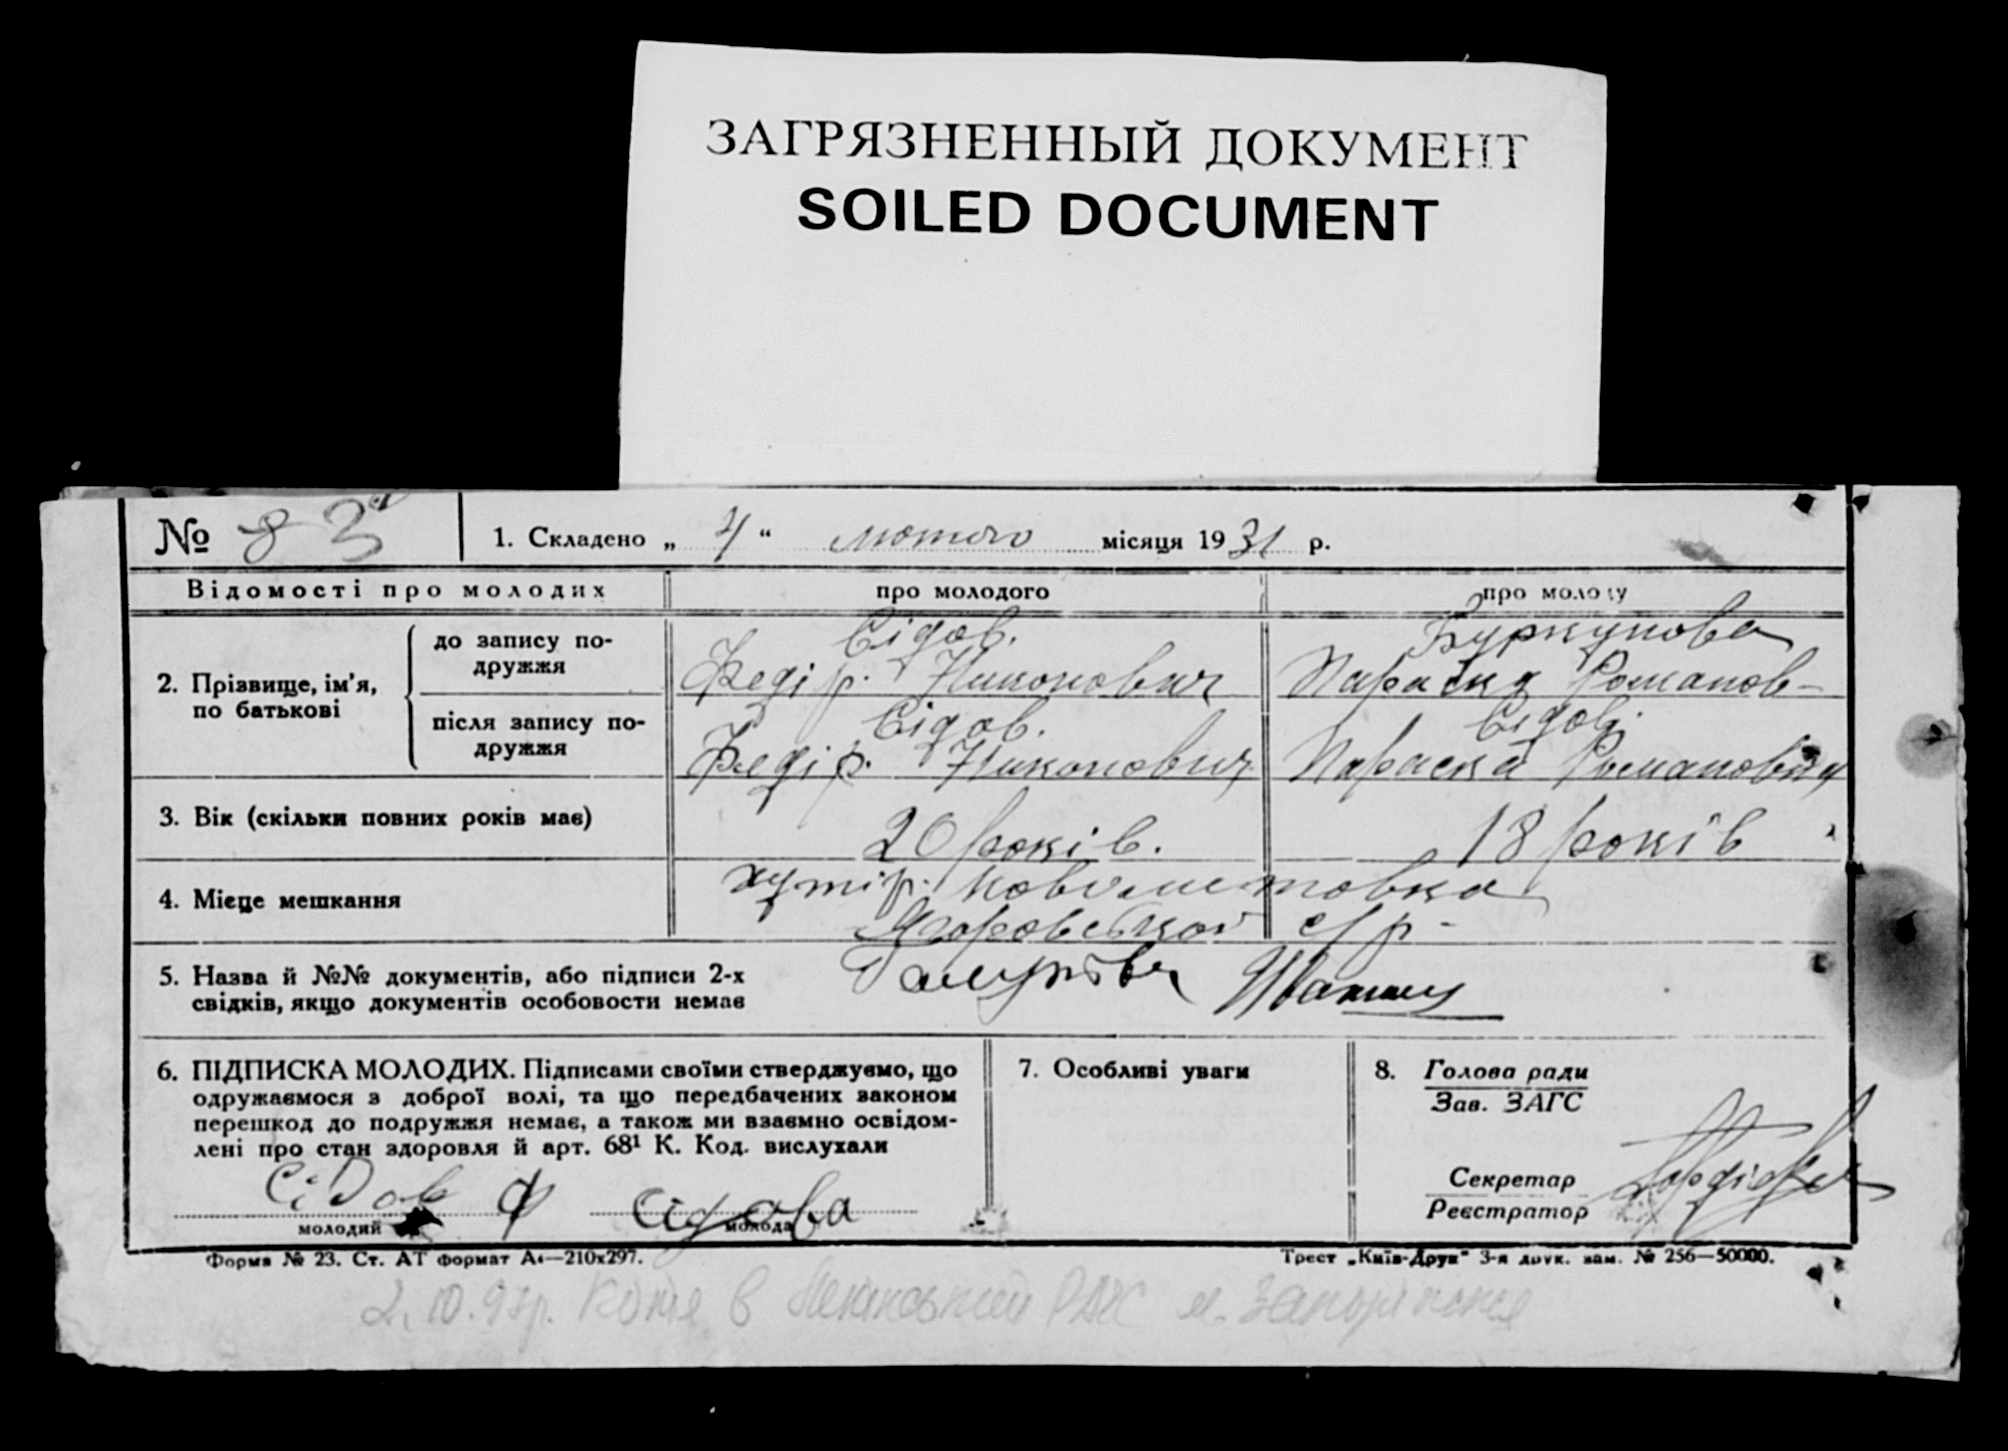 ЗАГРЯЗНЕННЫЙ ДОКУМЕНТ
SOILED DOCUMENT
№ 83
1. Складено „ 4 “ лютого місяця 1931 р.
Відомості про молодих
про молодого
про молоду
2. Прізвище, ім'я, по батькові
до запису подружжя
Сідов.
Федір. Никонович
Буркунова
Параска Романов-
після запису подружжя
Сідов.
Федір. Никонович
Сідов.
Параска Романовна
3. Вік (скільки повних років має)
20 років.
18 років
4. Місце мешкання
хутір.
с/р-
5. Назва й №№ документів, або підписи 2-х
свідків, якщо документів особовости немає
6. ПІДПИСКА МОЛОДИХ. Підписами своїми стверджуємо, що
одружаємося з доброї волі, та що передбачених законом
перешкод до подружжя немає, а також ми взаємно освідом-
лені про стан здоровля й арт. 68¹ К. Код. вислухали
Сідов Ф
молодий
Сідова
молода
7. Особливі уваги
8. Голова ради
Зав. ЗАГС
Секретар
Реєстратор
Форма № 23. Ст. АТ формат А4—210х297.
Трест „Київ-Друк“ 3-я друк. зам. № 256—50000.
Копія в Ленінський РАГС м. Запоріжжя